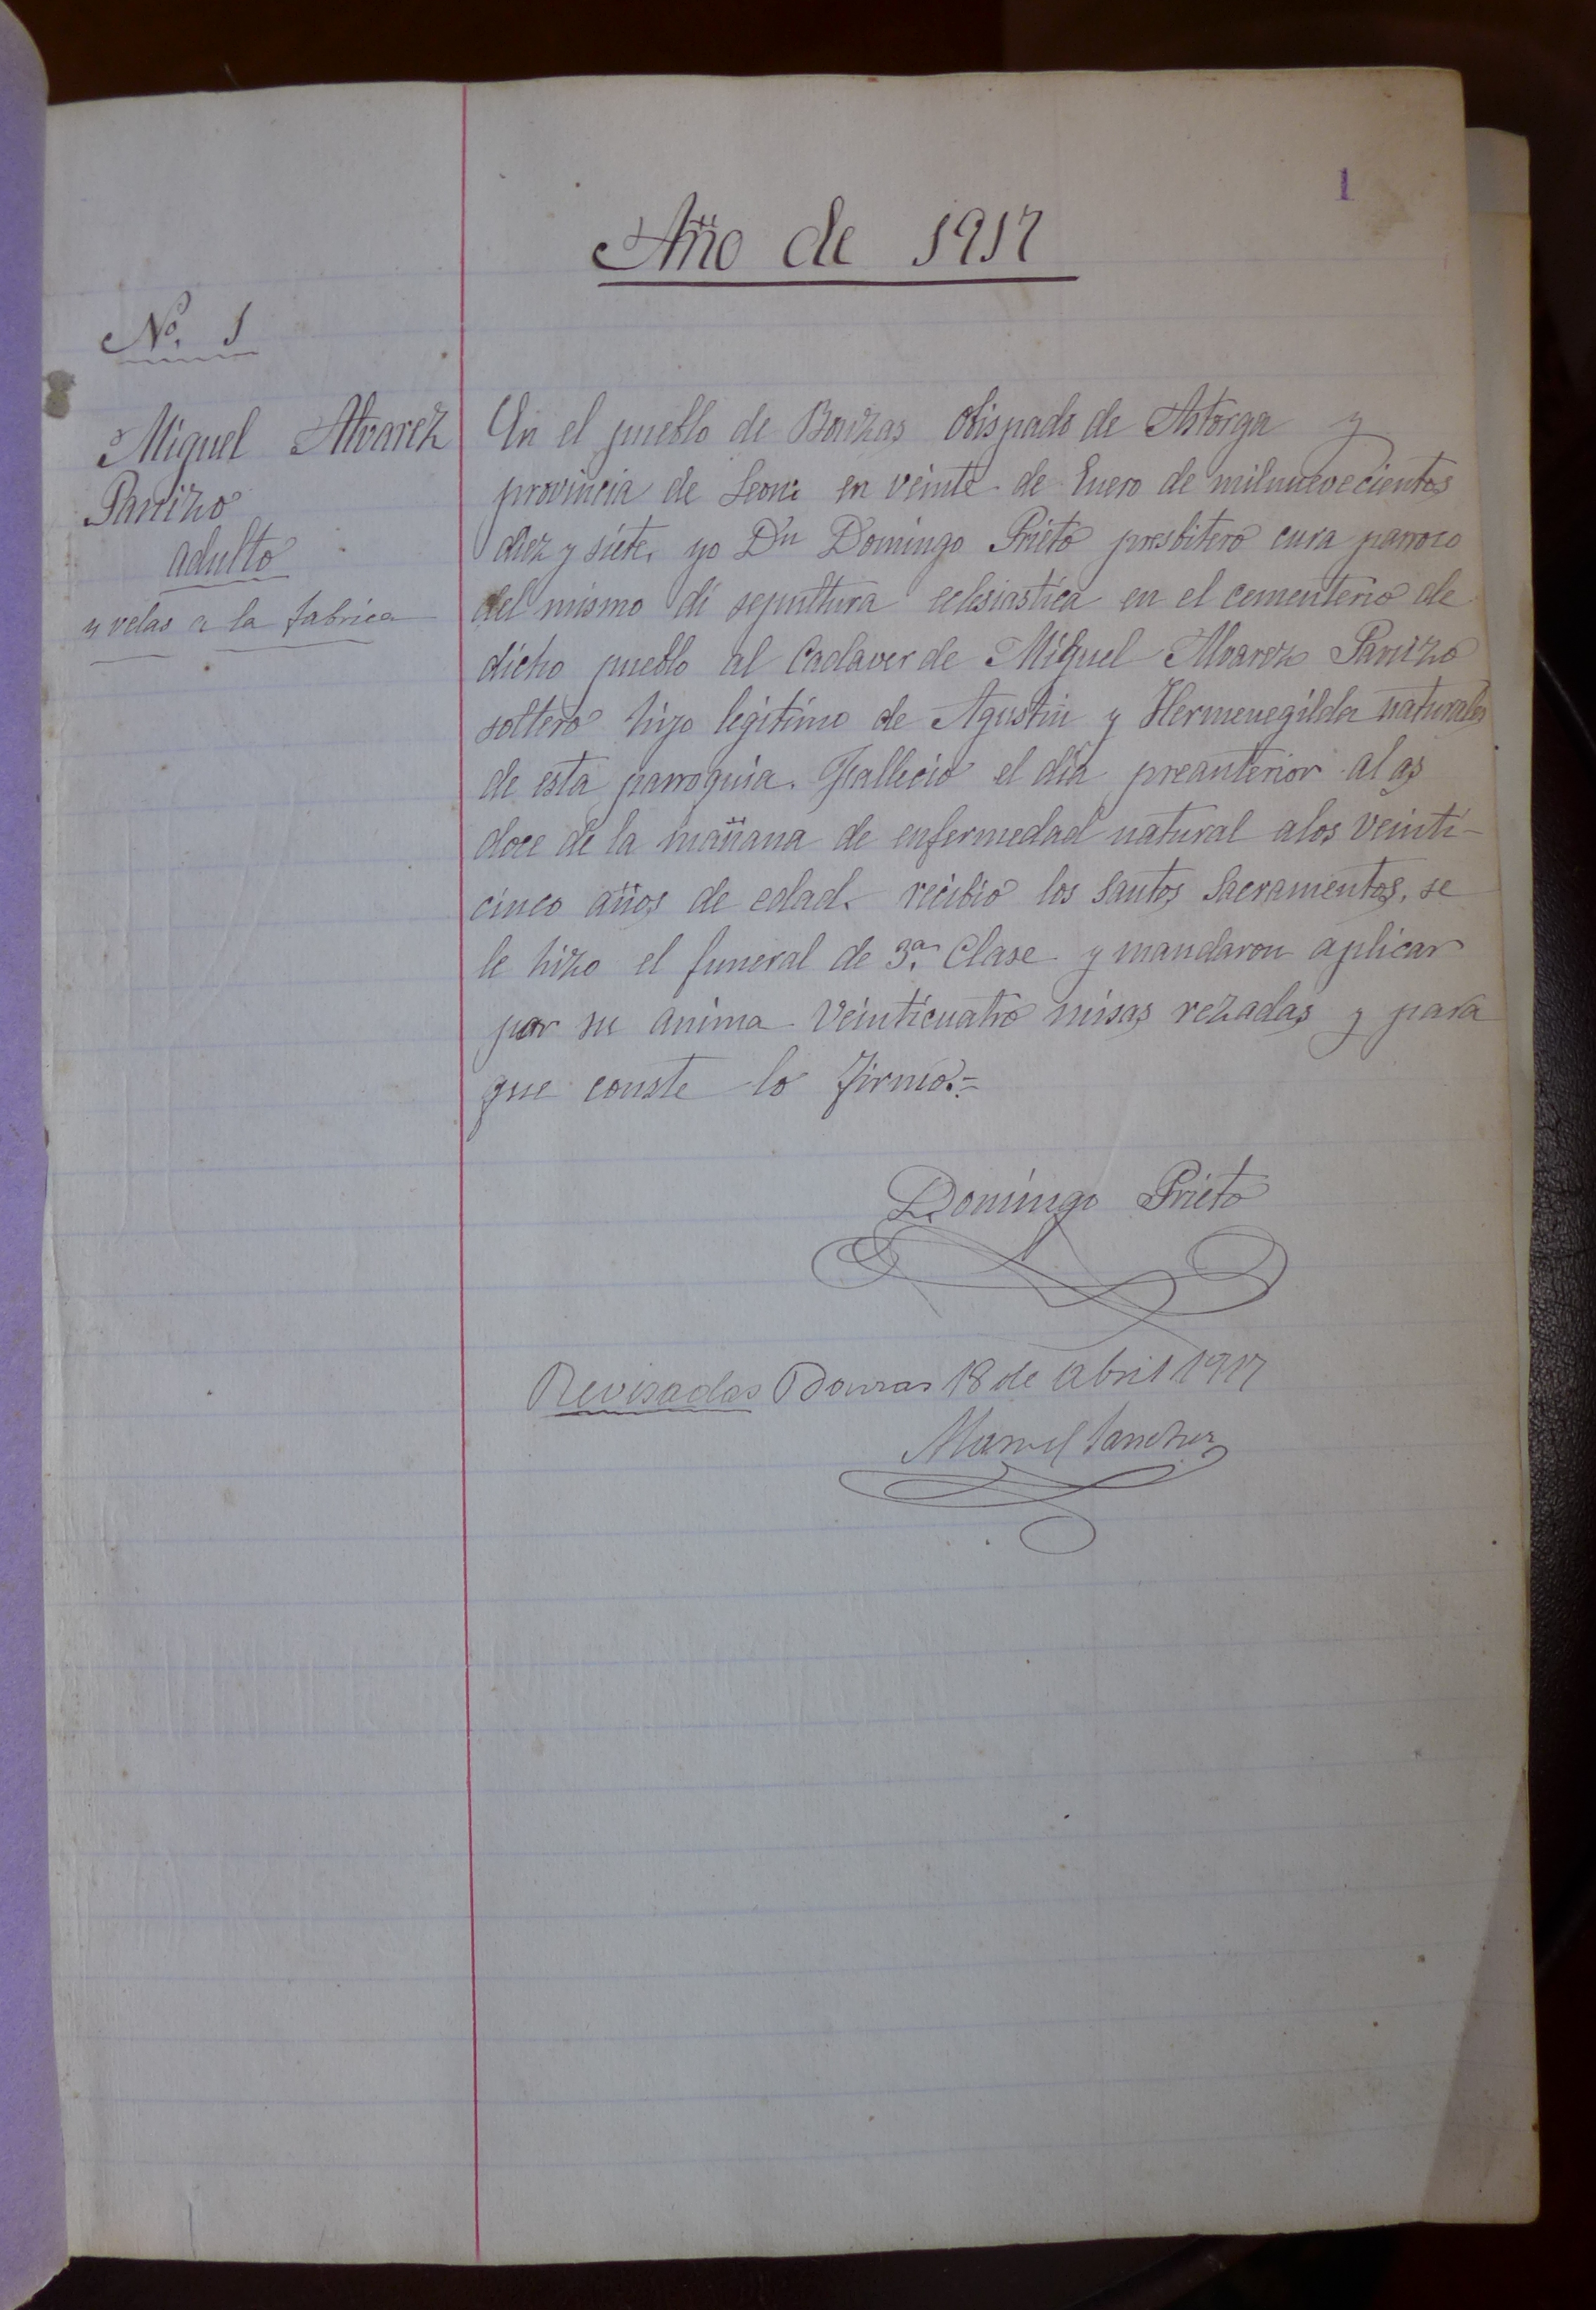 1
Año de 1917
Nº. 1
Miguel Alvarez
Panizo
adulto
4 velas a la fabrica
En el pueblo de Bouzas obispado de Astorga y
provincia de Leon: en veinte de Enero de milnuevecientos
diez y siete, yo Dn Domingo Prieto presbitero cura parroco
del mismo di sepultura eclesiastica en el cementerio de
dicho pueblo al Cadaver de Miguel Alvarez Panizo
soltero hijo legitimo de Agustin y Hermenegilda naturales
de esta parroquia. Fallecio el dia preanterior alas
doce de la mañana de enfermedad natural alos veinti-
cinco años de edad. recibio los Santos Sacramentos, se
le hizo el funeral de 3ª. Clase y mandaron aplicar
por su anima Veinticuatro misas rezadas y para
que conste lo firmo.=
Domingo Prieto
Revisadas Bouzas 18 de Abril 1917
Manuel Sanchez